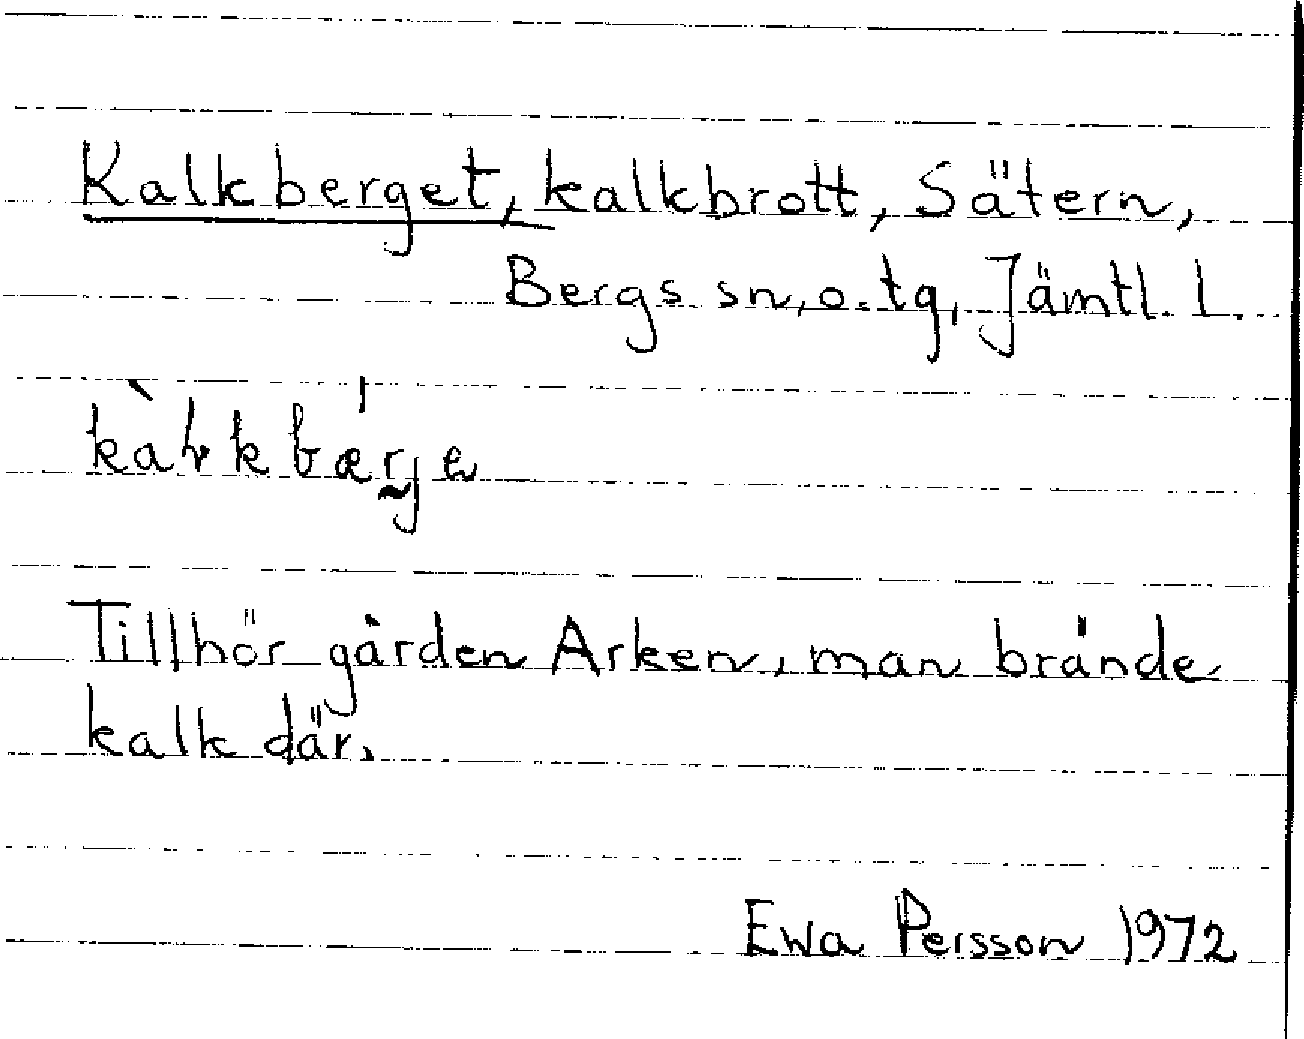 Kalkberget, kalkbrott, Sätern,
Bergs sn, o. tg, Jämtl. l.
Tillhör gården Arken, man brände
kalk där.
Ewa Persson 1972